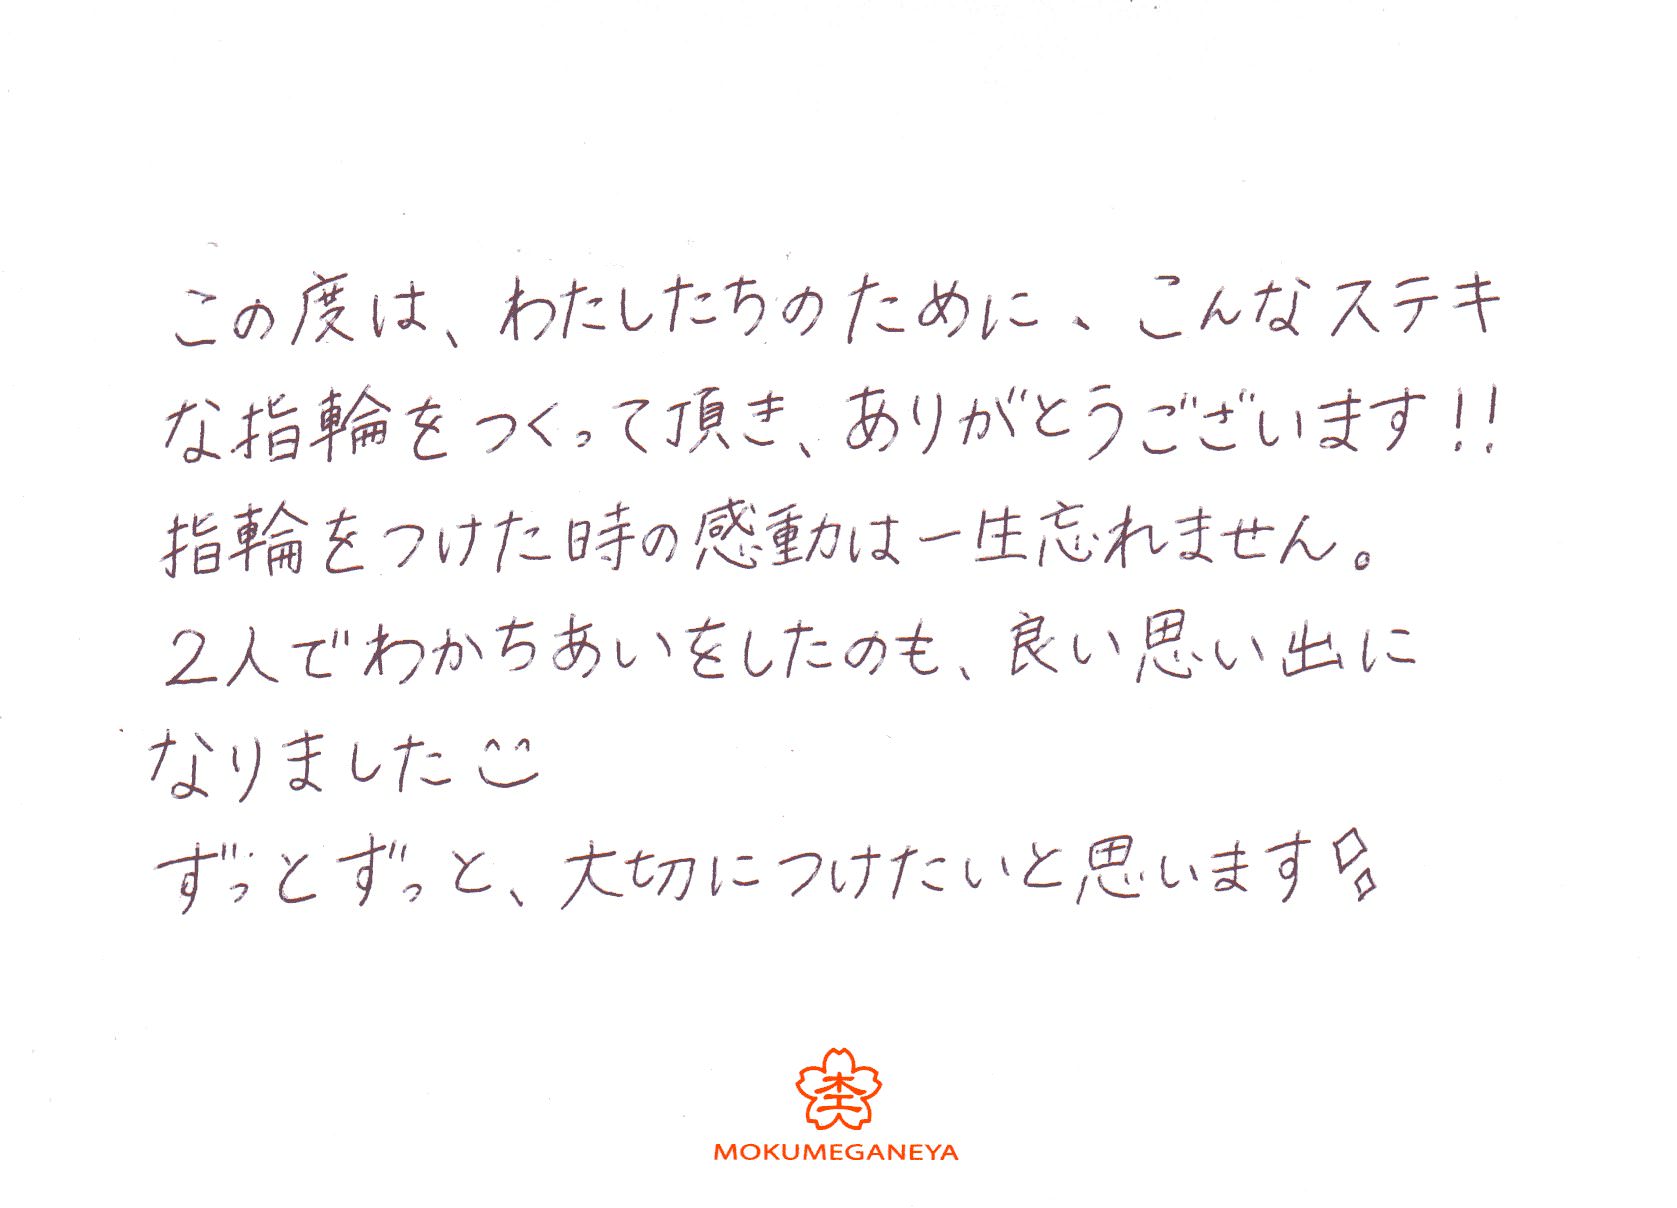 この度は、わたしたちのために、こんなステキ
な指輪をつくって頂き、ありがとうございます!!
指輪をつけた時の感動は一生忘れません。
2人でわかちあいをしたのも、良い思い出に
なりました
ずっとずっと、大切につけたいと思います
杢
MOKUMEGANEYA